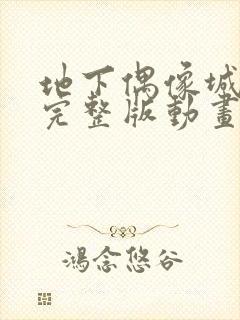 地下偶像城
完整版動畫
鴻念悠谷